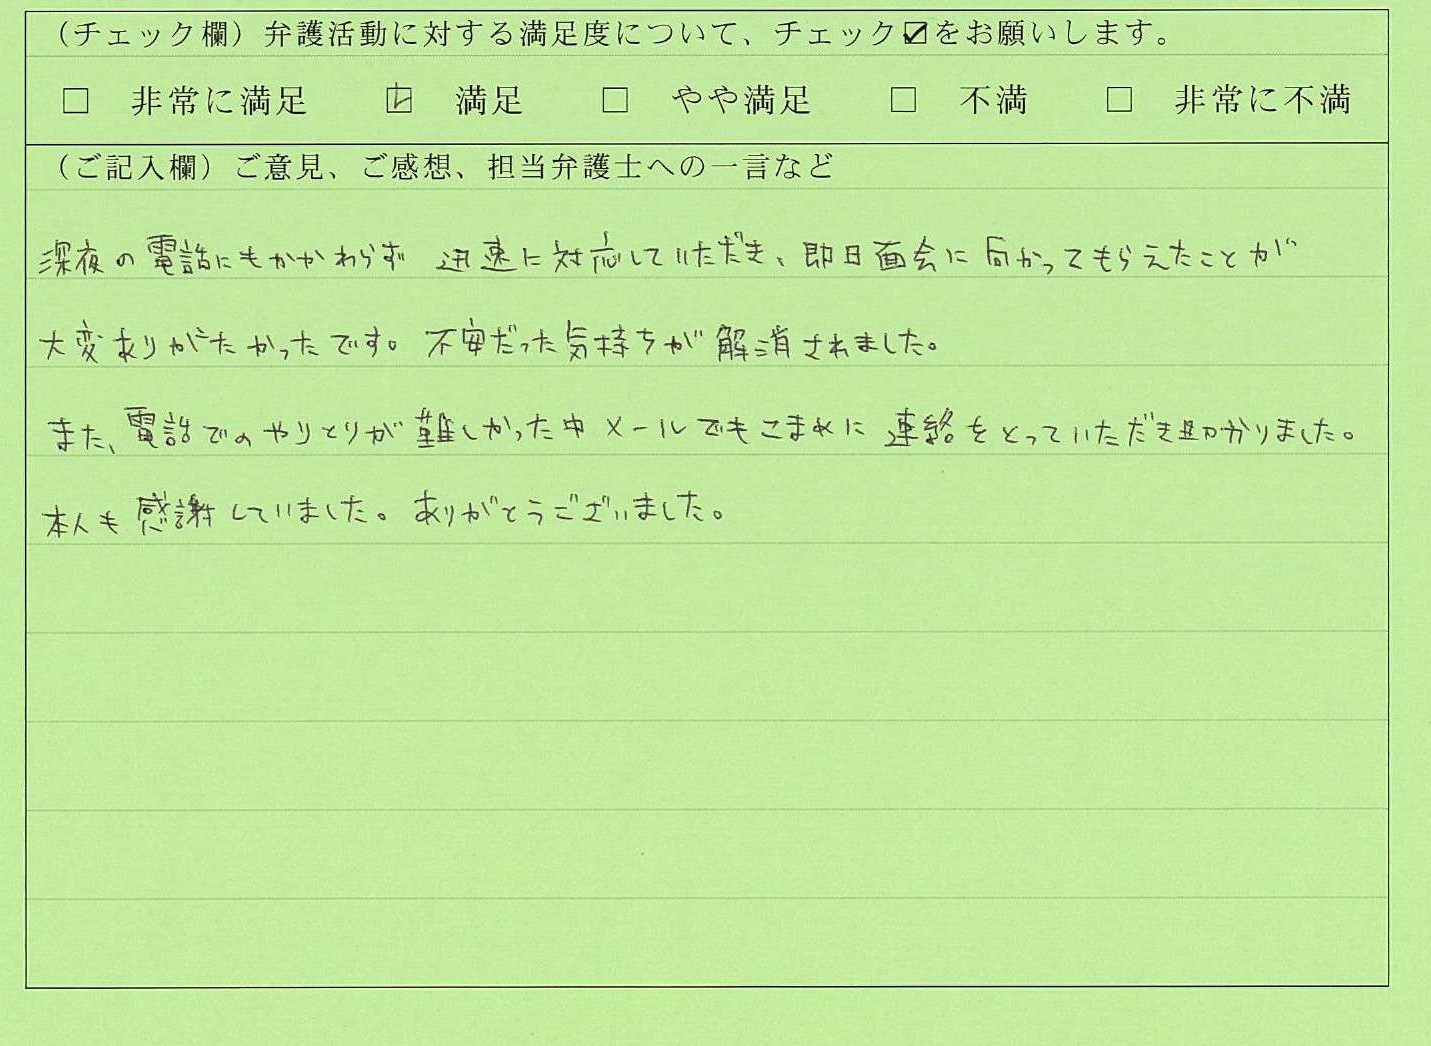 （チェック欄）弁護活動に対する満足度について、チェック☑をお願いします。
□ 非常に満足 ☑ 満足 □ やや満足 □ 不満 □ 非常に不満
（ご記入欄）ご意見、ご感想、担当弁護士への一言など
深夜の電話にもかかわらず 迅速に対応していただき、即日面会に向かってもらえたことが
大変ありがたかったです。不安だった気持ちが解消されました。
また、電話でのやりとりが難しかった中メールでもこまめに連絡をとっていただき助かりました。
本人も感謝していました。ありがとうございました。